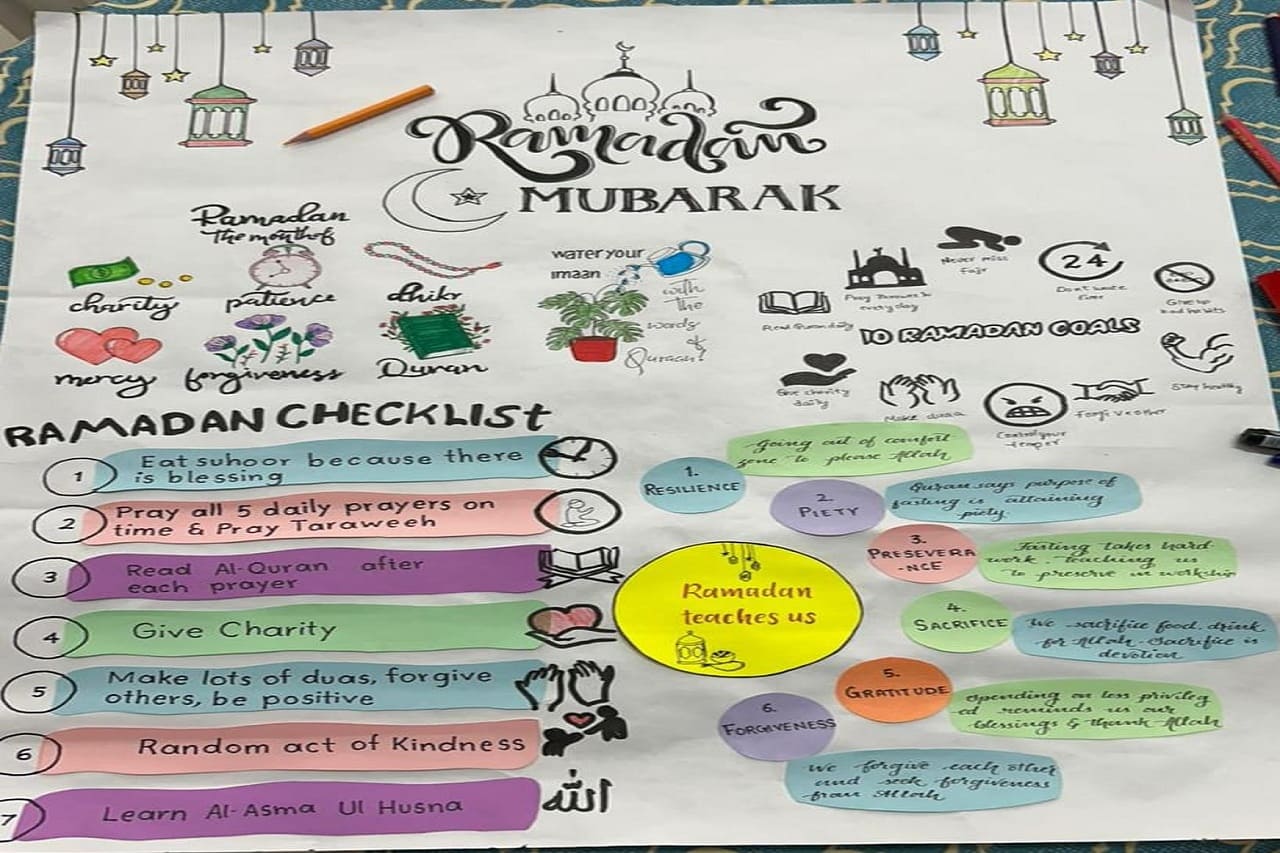 Ramadan
MUBARAK
Ramadan
The month of
charity
patience
dhikr
mercy
forgiveness
Quran
water your
imaan
with
the
words
of
Quraan!
Never miss
Fajr
24
Don't waste
time
Give up
bad habits
Pray Taraweeh
everyday
Read Quran daily
10 RAMADAN GOALS
Stay healthy
Give charity
daily
Make duaa
Control your
temper
Forgive other
RAMADAN CHECKLIST
1 Eat suhoor because there
is blessing
2 Pray all 5 daily prayers on
time & Pray Taraweeh
3 Read Al-Quran after
each prayer
4 Give Charity
5 Make lots of duas, forgive
others, be positive
6 Random act of Kindness
7 Learn Al-Asma Ul Husna
الله
Ramadan
teaches us
1.
RESILIENCE
Going out of comfort
zone to please Allah
2.
PIETY
Quran says purpose of
fasting is attaining
piety.
3.
PRESEVERA
-NCE
Fasting takes hard
work. Teaching us
to preserve in workship
4.
SACRIFICE
We sacrifice food, drink
for Allah. Sacrifice is
devotion
5.
GRATITUDE
spending on less privileg
ed reminds us our
blessings & thank Allah
6.
FORGIVENESS
We forgive each other
and seek forgiveness
from Allah